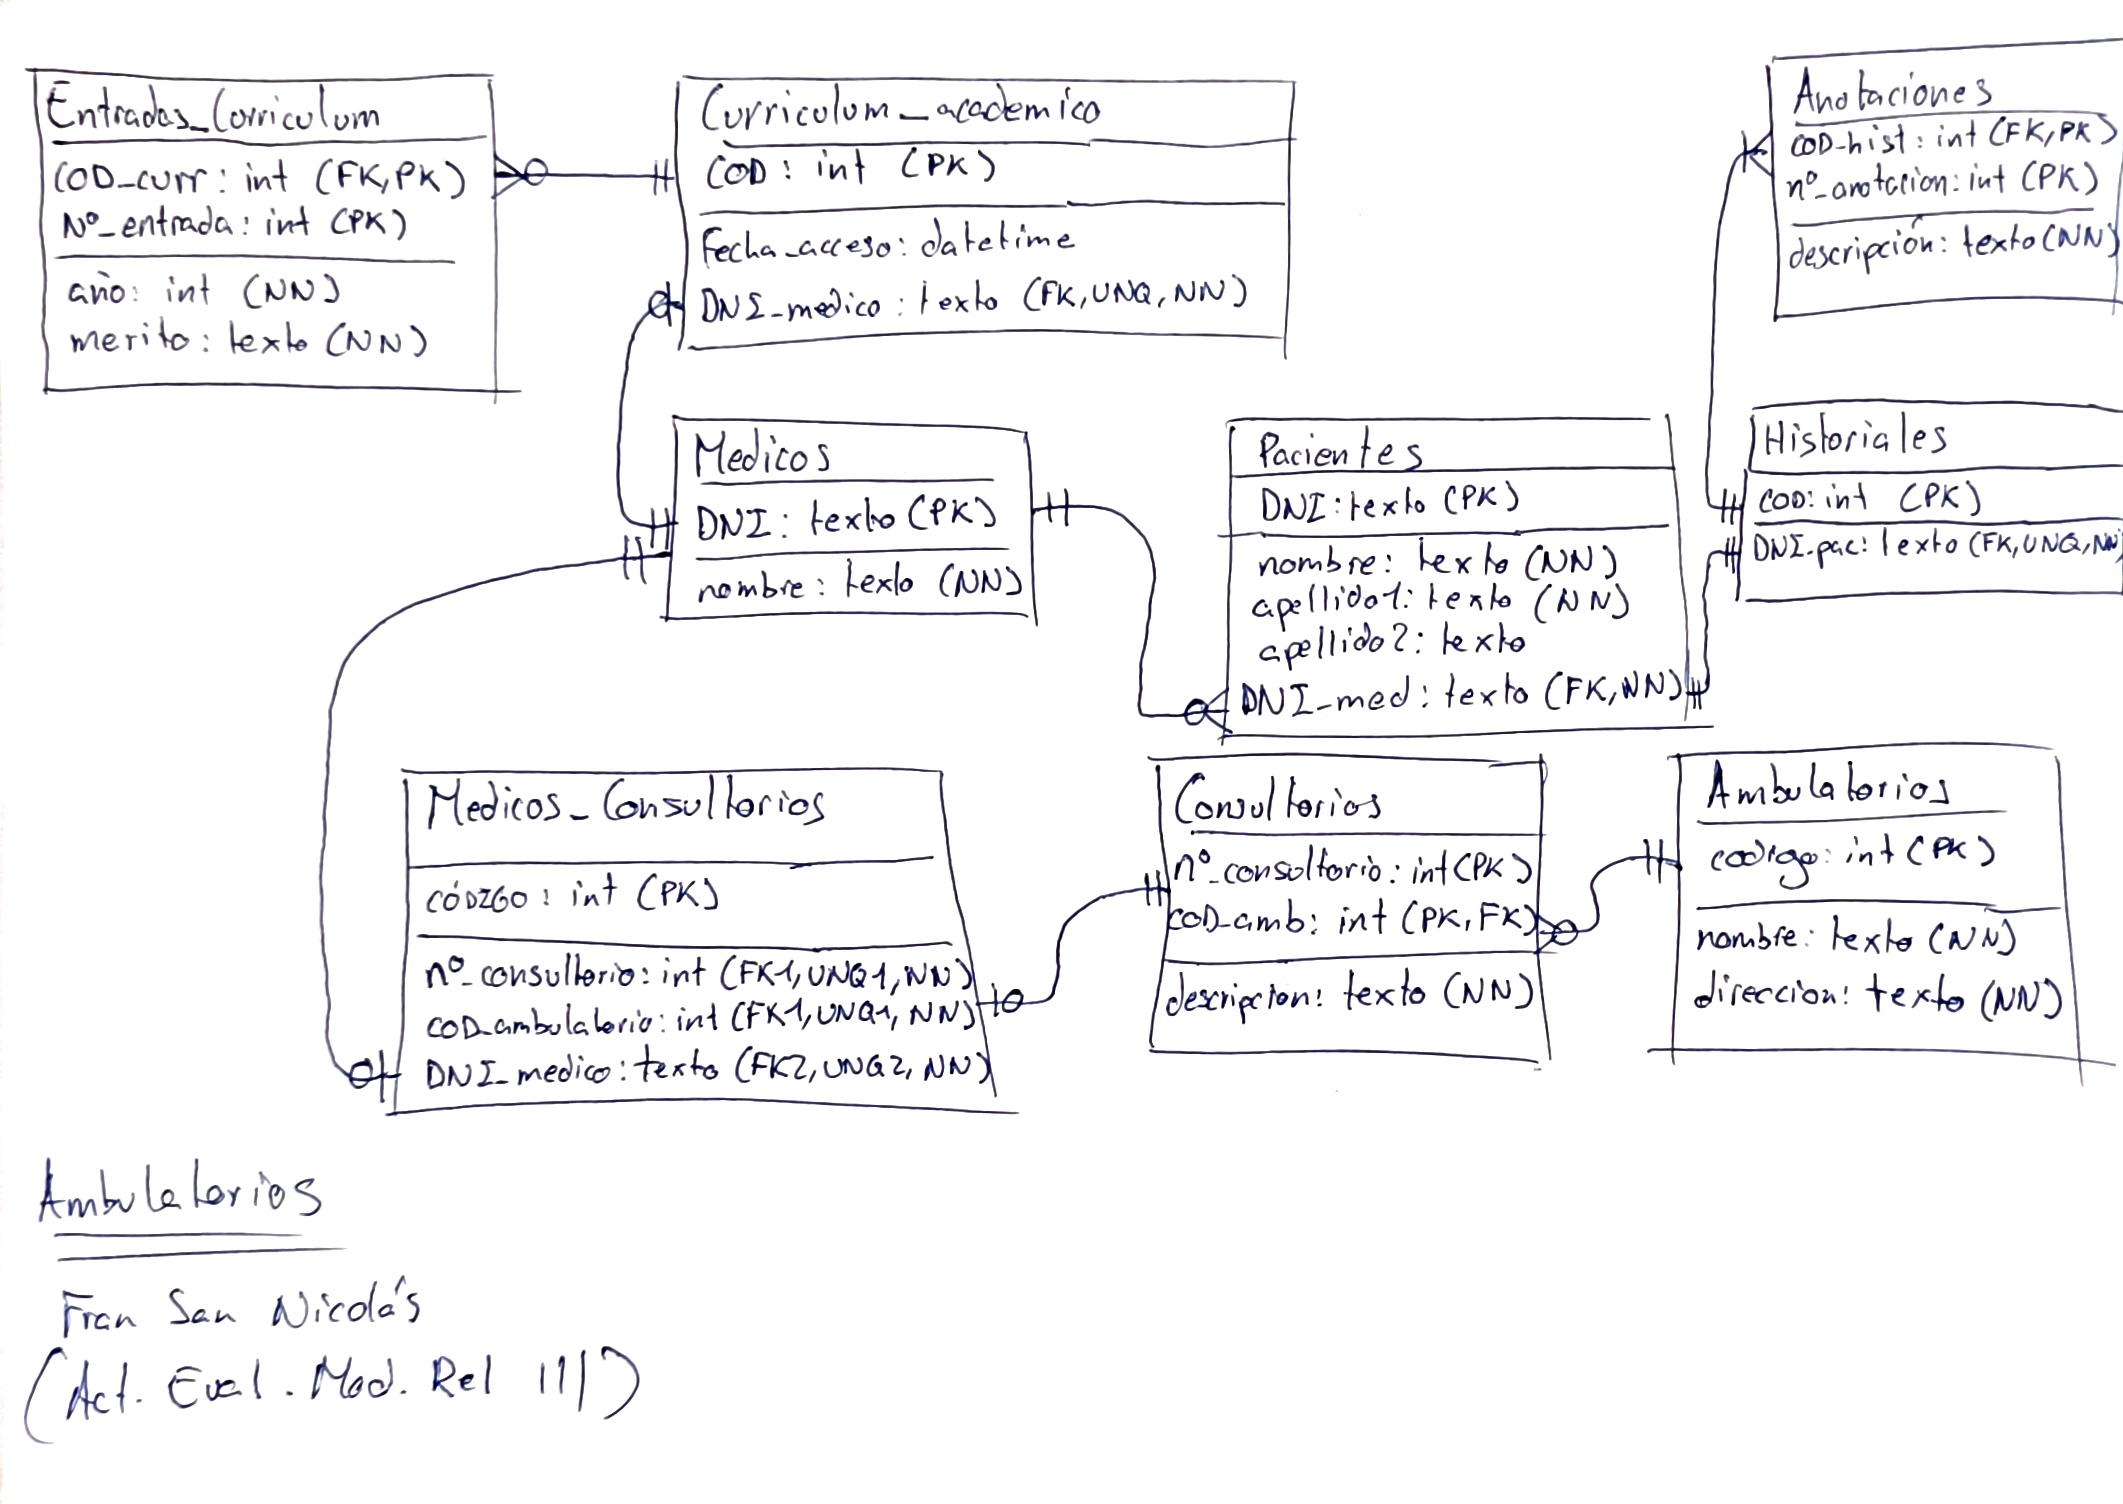 Entradas_Curriculum
COD_curr: int (FK,PK)
Nº_entrada: int (PK)
año: int (NN)
merito: texto (NN)
Curriculum_academico
COD: int (PK)
Fecha_acceso: datetime
DNI_medico: texto (FK,UNQ,NN)
Anotaciones
COD-hist: int (FK,PK)
nº_anotacion: int (PK)
descripción: texto (NN)
Medicos
DNI: texto (PK)
nombre: texto (NN)
Pacientes
DNI: texto (PK)
nombre: texto (NN)
apellido1: texto (NN)
apellido2: texto
DNI_med: texto (FK,NN)
Historiales
COD: int (PK)
DNI-pac: texto (FK,UNQ,NN
Medicos_Consultorios
CÓDIGO: int (PK)
nº_consultorio: int (FK1,UNQ1,NN)
COD_ambulatorio: int (FK1,UNQ1,NN)
DNI_medico: texto (FK2,UNQ2,NN)
Consultorios
nº_consultorio: int (PK)
COD_amb: int (PK,FK)
descripcion: texto (NN)
Ambulatorios
codigo: int (PK)
nombre: texto (NN)
direccion: texto (NN)
Ambulatorios
Fran San Nicolás
(Act. Eval. Mod. Rel III)